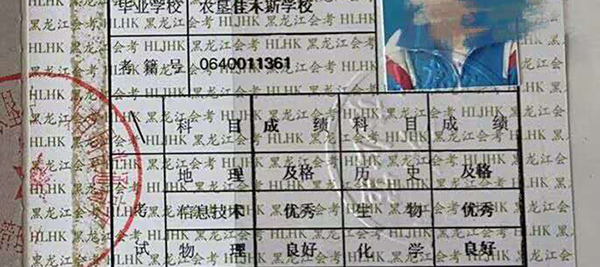 毕业学校 农垦佳木斯学校
考籍号 0640011361
科目 成绩 科目 成绩
地理 及格 历史 及格
考 信息技术 优秀 生物 优秀
试 物理 良好 化学 良好
黑龙江会考 HLJHK 黑龙江会考 HLJHK 黑龙江会考